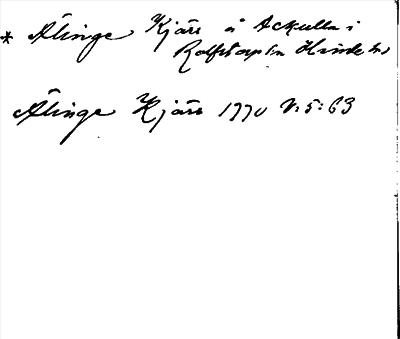 * Älinge Kjärr å Ackulla i
Rolfstorp sn Himle hd
Älinge Kjärr 1770 N:5:63